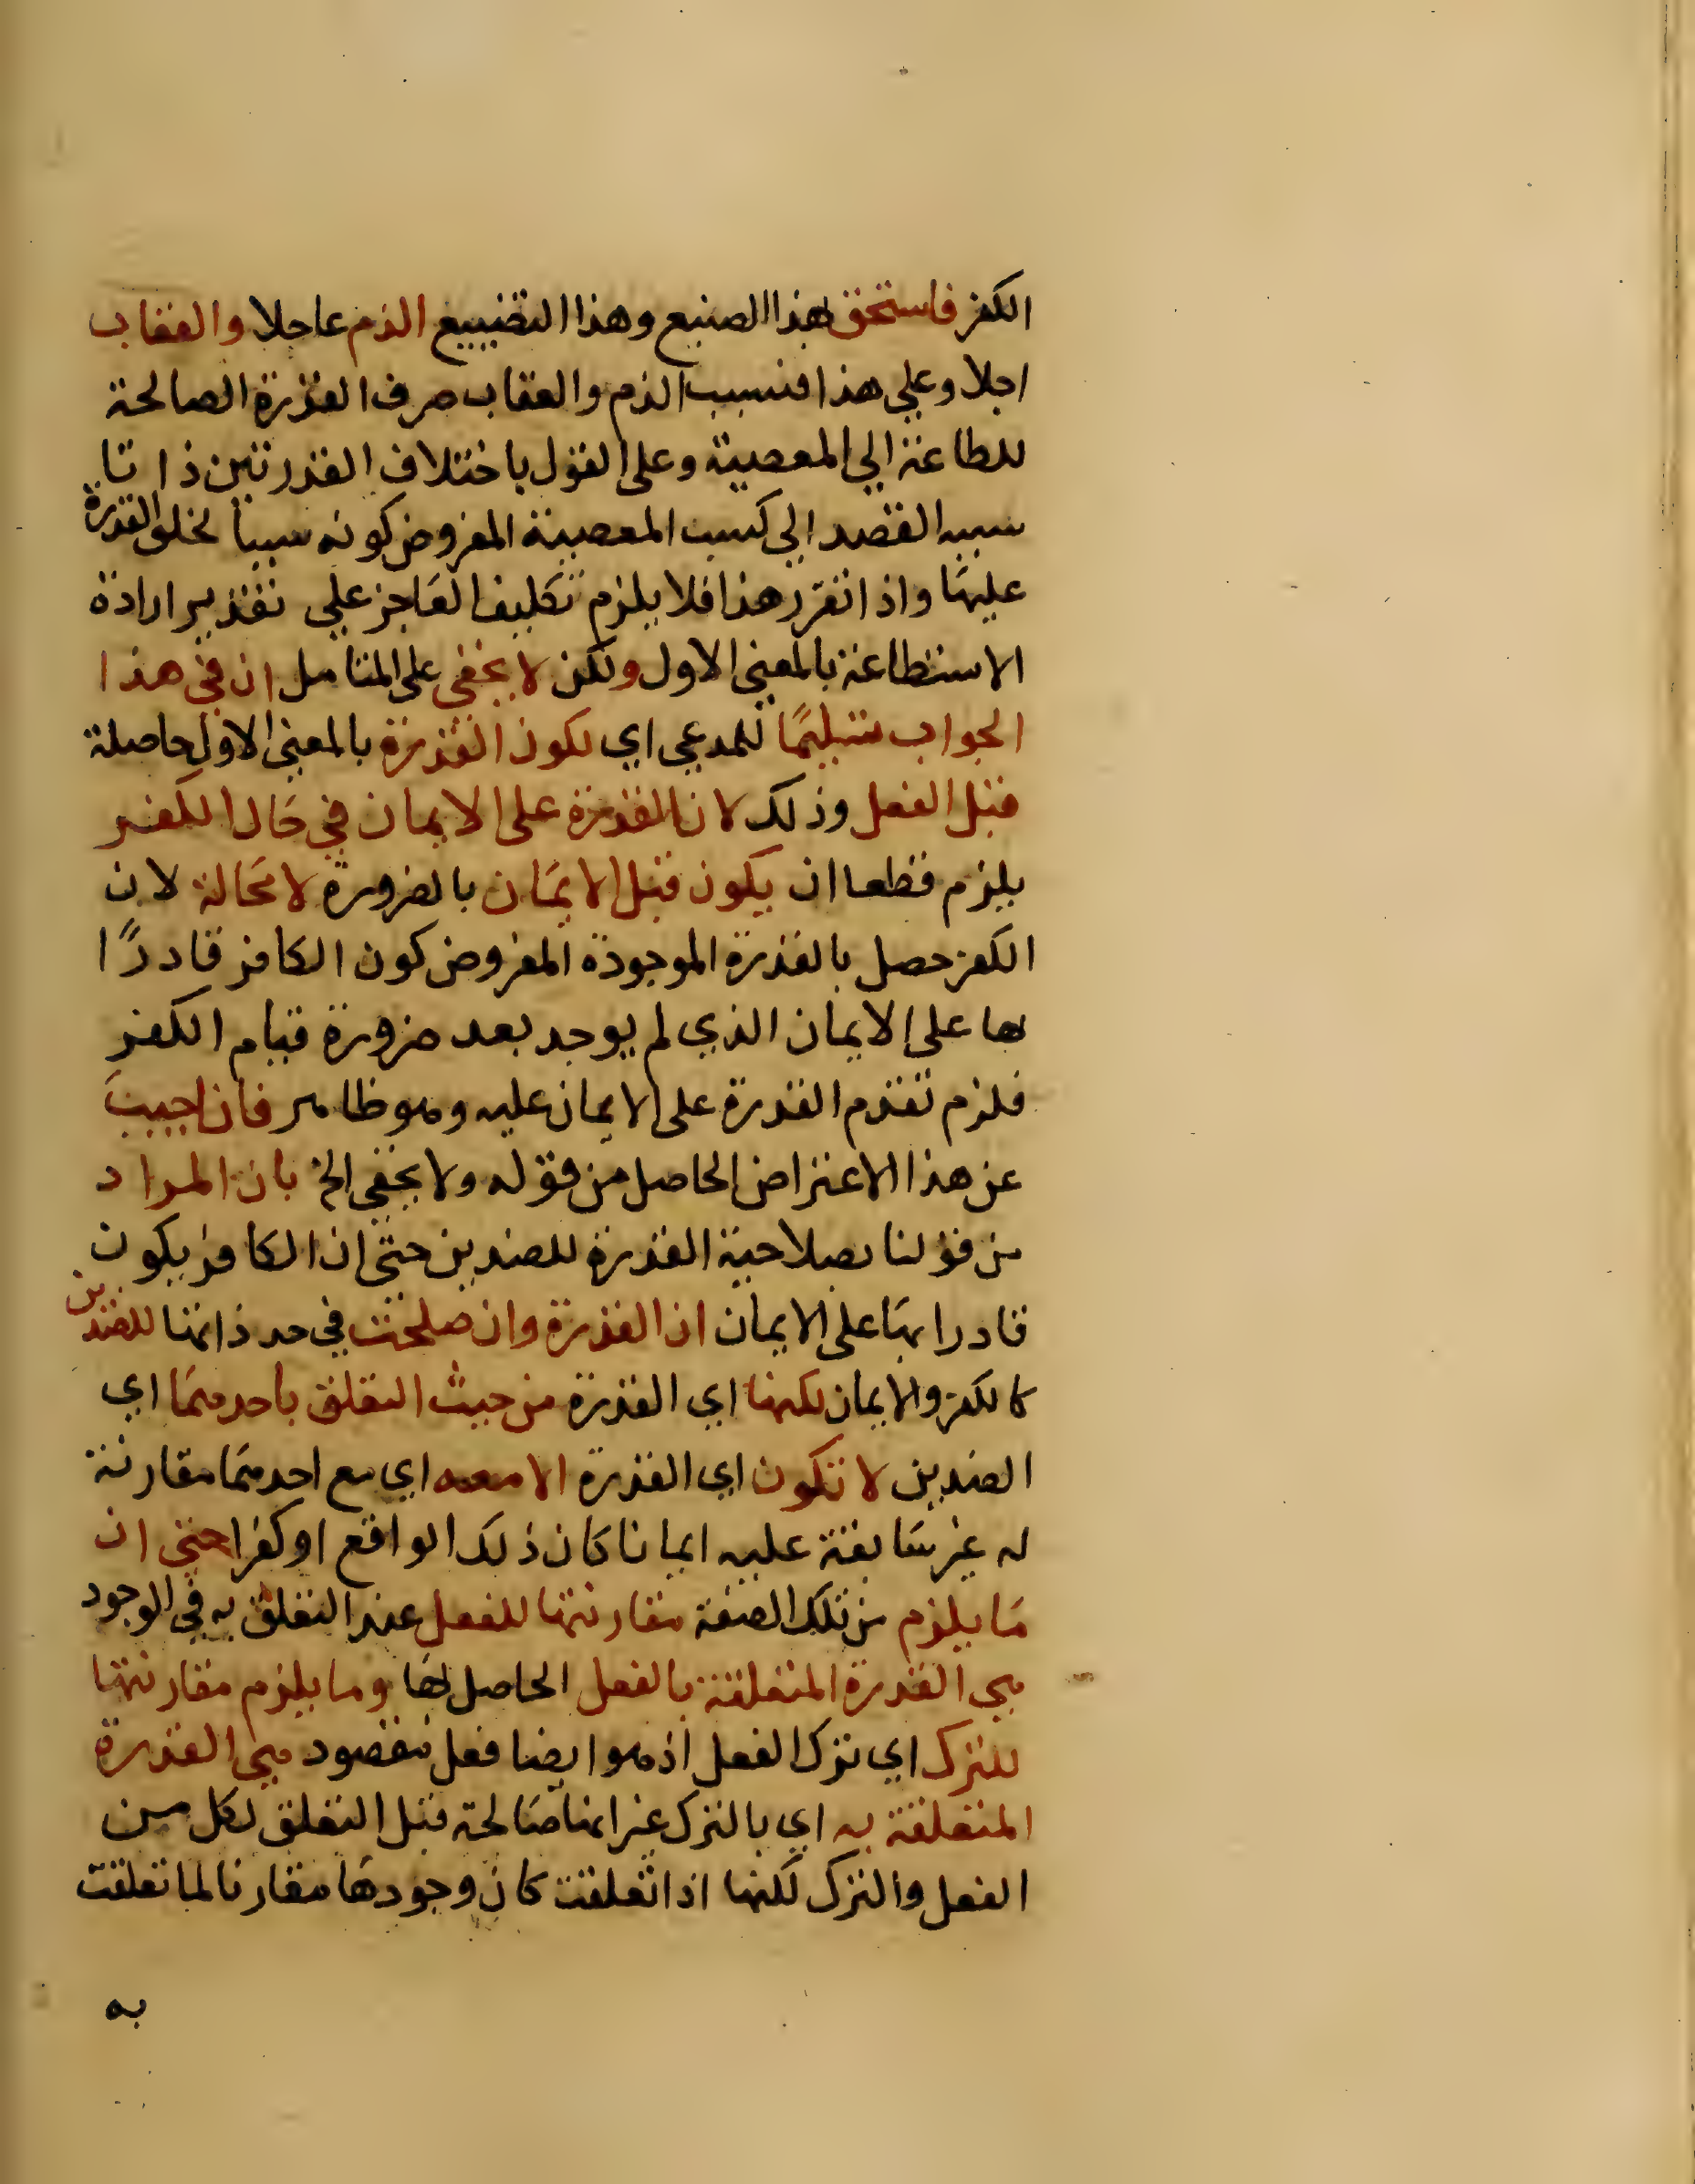 الكفر فاستحق بهذا الصنيع وهذا التضييع الذم عاجلا والعقاب
اجلا وعلي هذا فسبب الذم والعقاب صرف القدرة الصالحة
للطاعة الي المعصية وعلى القول باختلاف القدرتين ذاتا
سببه القصد الي كسب المعصية المفروض كونه سببا لخلق القدرة
عليها واذا تقرر هذا فلا يلزم تكليف العاجز علي تقدير ارادة
الاستطاعة بالمعني الاول ولكن لا يخفي على المتامل ان في هذا
الجواب تسليمًا للمدعي اي لكون القدرة بالمعني الاول حاصلة
قبل الفعل وذلك لان القدرة على الايمان في حال الكفر
يلزم قطعا ان يكون قبل الايمان بالضرورة لا محالة لان
الكفر حصل بالقدرة الموجودة المفروض كون الكافر قادرًا
بها على الايمان الذي لم يوجد بعد ضرورة قيام الكفر
فلزم تقدم القدرة على الايمان عليه وهو ظاهر فان اجيب
عن هذا الاعتراض الحاصل من قوله ولا يخفي الخ بان المراد
من قولنا بصلاحية القدرة للضدين حتى ان الكافر يكون
قادرا بها على الايمان ان القدرة وان صلحت في حد ذاتها للضدين
كالكفر والايمان لكنها اي القدرة من حيث التعلق باحدهما اي
الضدين لا تكون اي القدرة الا معه اي مع احدهما مقارنة
له غير سابقة عليه ايمانا كان ذلك الواقع او كفرا حتى ان
ما يلزم من تلك الصفة مقارنتها للفعل عند التعلق به في الوجود
هي القدرة المتعلقة بالفعل الحاصل لها وما يلزم مقارنتها
للترك اي ترك الفعل اذ هو ايضا فعل مقصود هي القدرة
المتعلقة به اي بالترك غير انها صالحة قبل التعلق لكل من
الفعل والترك لكنها اذا تعلقت كان وجودها مقارنا لما تعلقت
به